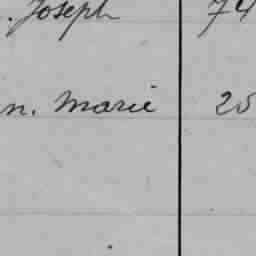 . Joseph 74
n. Marie 25